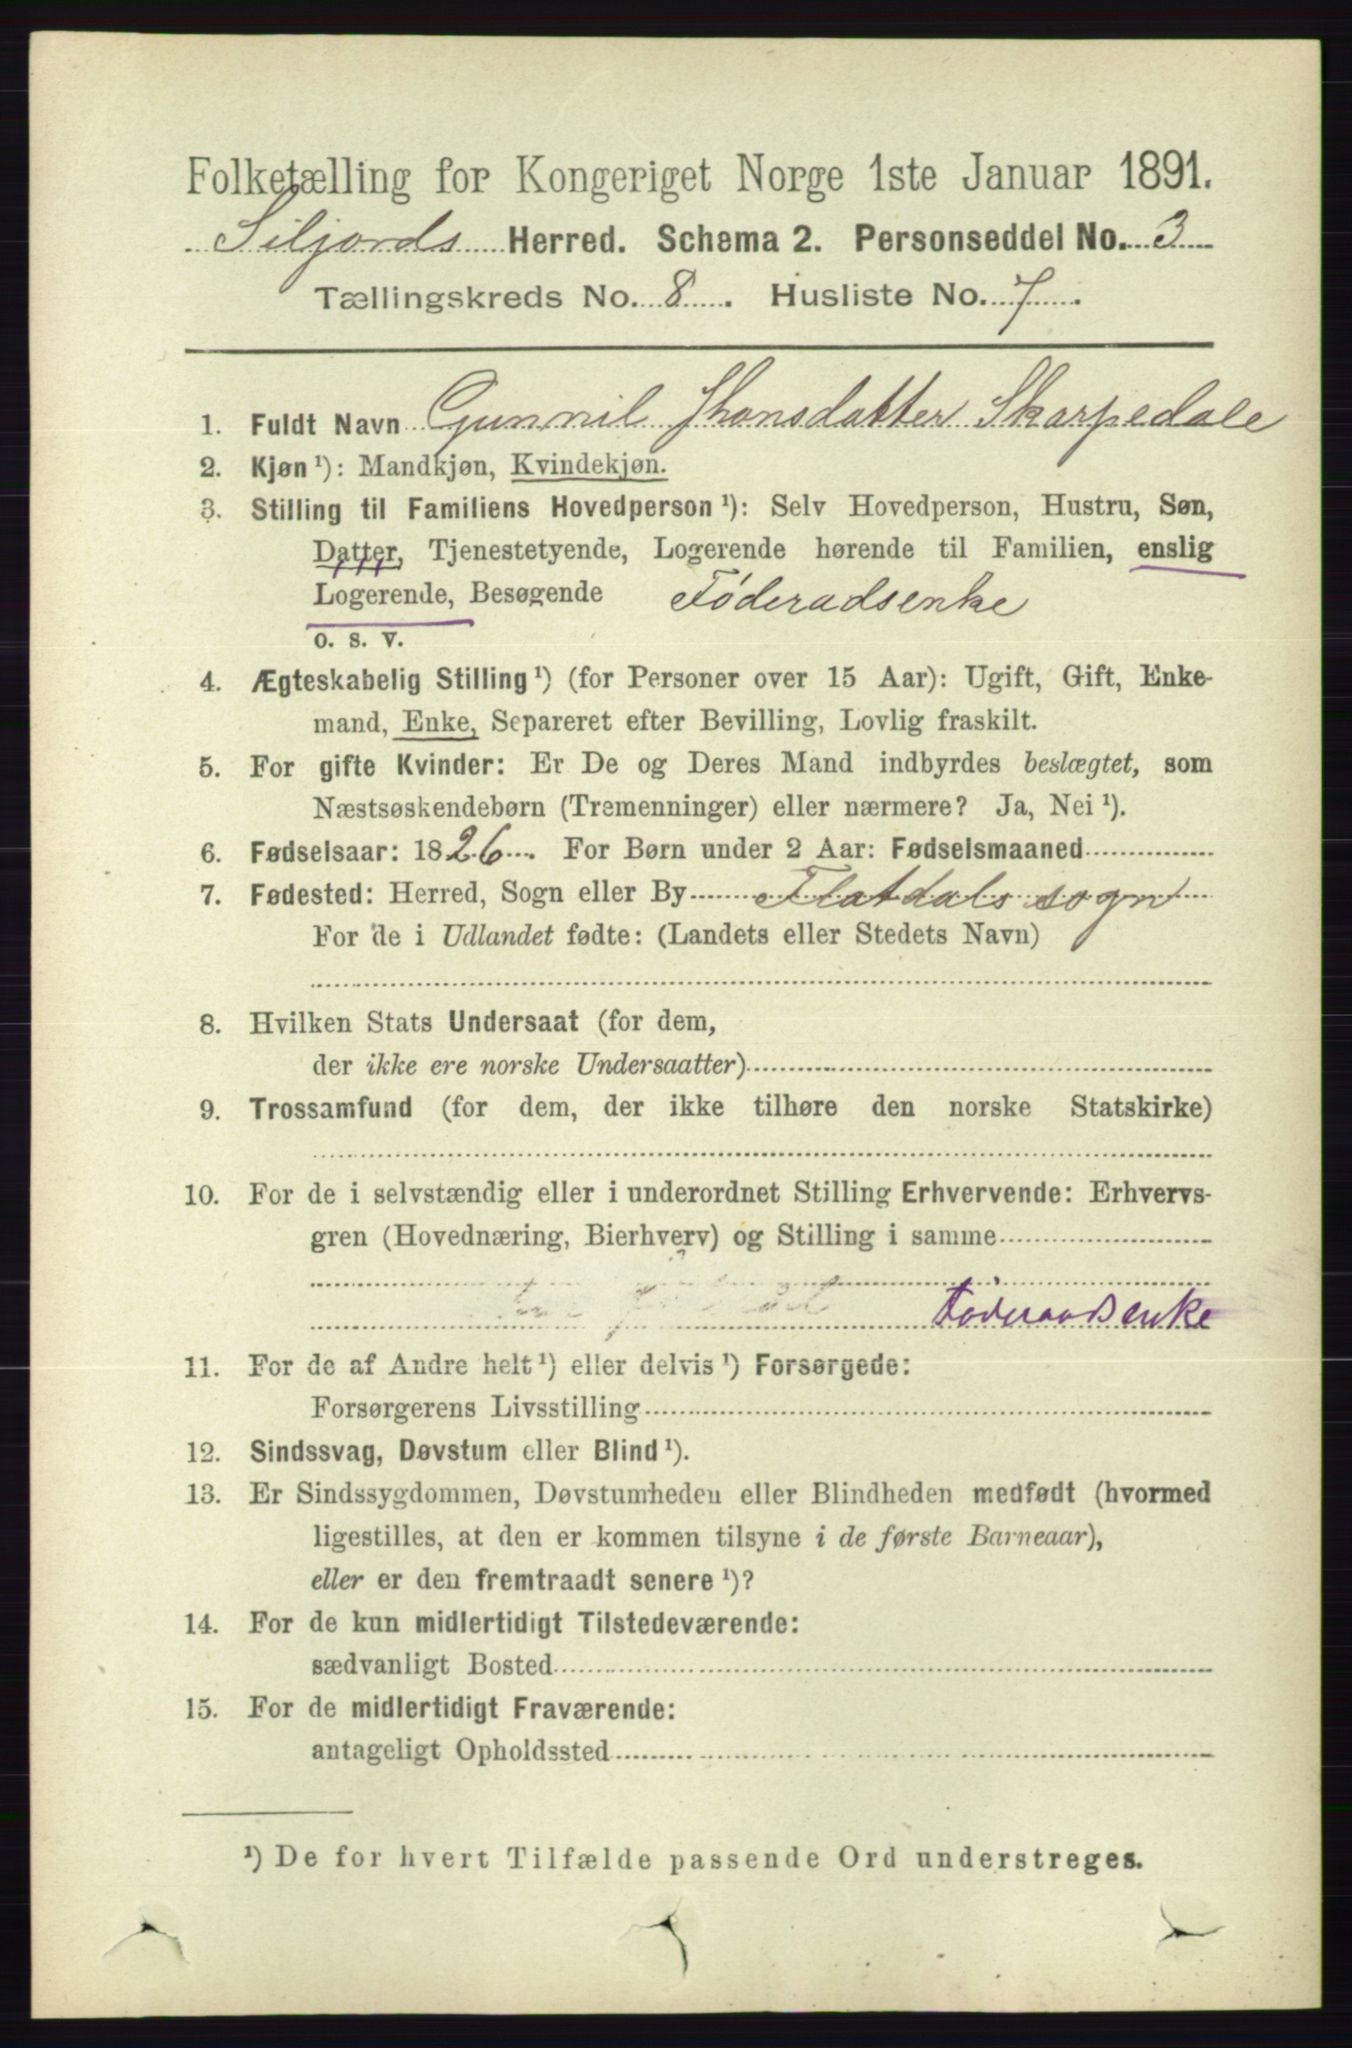 Folketælling for Kongeriget Norge 1ste Januar 1891.
Siljords Herred. Schema 2. Personseddel No. 3
Tællingskreds No. 8. Husliste No. 7.
1. Fuldt Navn Gunnil Jhonsdatter Skarpedale
2. Kjøn ¹): Mandkjøn, Kvindekjøn.
3. Stilling til Familiens Hovedperson ¹): Selv Hovedperson, Hustru, Søn,
Datter, Tjenestetyende, Logerende hørende til Familien, enslig
Logerende, Besøgende Føderadsenke
o. s. v.
4. Ægteskabelig Stilling ¹) (for Personer over 15 Aar): Ugift, Gift, Enke-
mand, Enke, Separeret efter Bevilling, Lovlig fraskilt.
5. For gifte Kvinder: Er De og Deres Mand indbyrdes beslægtet, som
Næstsøskendebørn (Tremenninger) eller nærmere? Ja, Nei ¹).
6. Fødselsaar: 1826. For Børn under 2 Aar: Fødselsmaaned
7. Fødested: Herred, Sogn eller By Flatdals sogn
For de i Udlandet fødte: (Landets eller Stedets Navn)
8. Hvilken Stats Undersaat (for dem,
der ikke ere norske Undersaatter)
9. Trossamfund (for dem, der ikke tilhøre den norske Statskirke)
10. For de i selvstændig eller i underordnet Stilling Erhvervende: Erhvervs-
gren (Hovednæring, Bierhverv) og Stilling i samme
Føderaadsenke
11. For de af Andre helt ¹) eller delvis ¹) Forsørgede:
Forsørgerens Livsstilling
12. Sindssvag, Døvstum eller Blind ¹).
13. Er Sindssygdommen, Døvstumheden eller Blindheden medfødt (hvormed
ligestilles, at den er kommen tilsyne i de første Barneaar),
eller er den fremtraadt senere ¹)?
14. For de kun midlertidigt Tilstedeværende:
sædvanligt Bosted
15. For de midlertidigt Fraværende:
antageligt Opholdssted
¹) De for hvert Tilfælde passende Ord understreges.